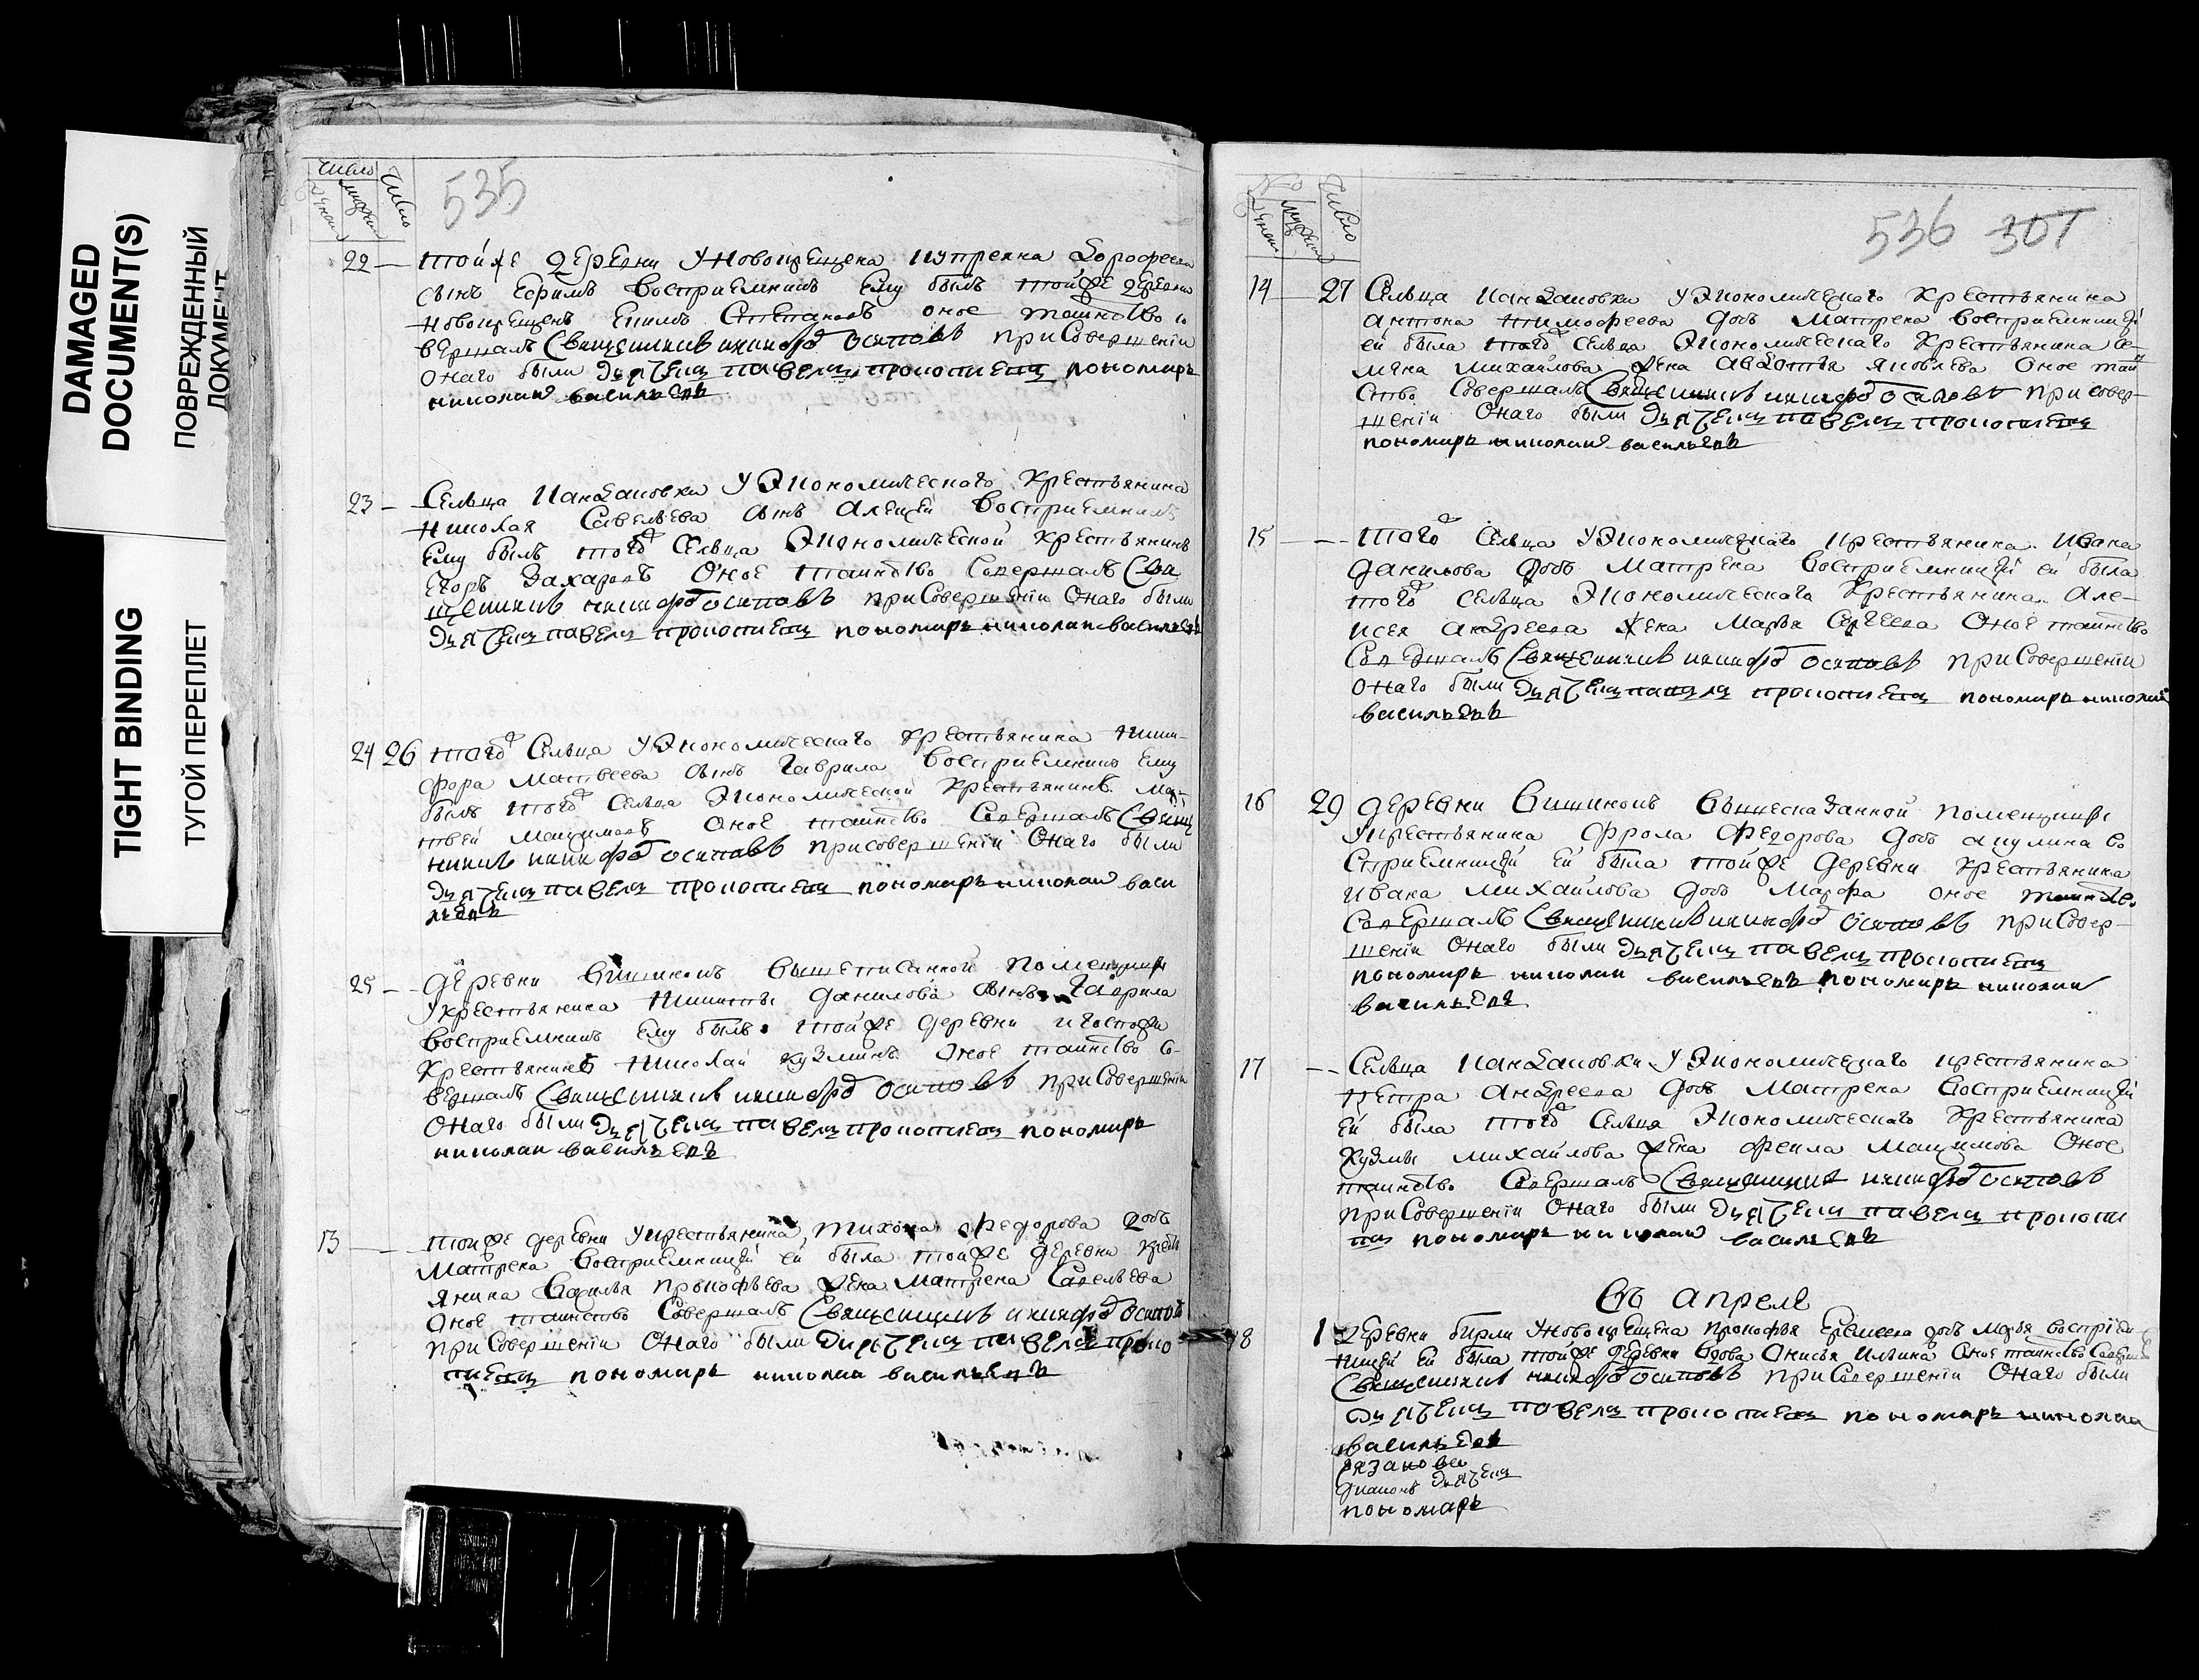 DAMAGED
DOCUMENT(S)
ПОВРЕЖДЕННЫЙ
ДОКУМЕНТ
TIGHT BINDING
ТУГОЙ ПЕРЕПЛЕТ
число
число
535
22 — тойже деревни у новокрещена Дорофеева
сынъ Ефимъ восприемникъ ему былъ тойже деревни
новокрещенъ Степановъ оное таинство со
вершалъ священникъ никифоръ осиповъ при совершенiи
онаго были дьячекъ павелъ прокопиевъ пономарь
николай васильевъ
23 — Сельца у Экономическаго крестьянина
Николая Савельева сынъ Алексей восприемникъ
ему былъ тогоже сельца Экономической крестьянинъ
Егоръ Захаровъ оное таинство совершалъ свя
щенникъ никифоръ осиповъ при совершенiи онаго были
дьячекъ павелъ прокопиевъ пономарь николай васильевъ
24 26 тогоже сельца у Экономическаго крестьянина Ники-
фора Матвеева сынъ Гаврила восприемникъ ему
былъ тогоже сельца Экономической крестьянинъ Мат-
твей Максимовъ оное таинство совершалъ священ
никъ никифоръ осиповъ при совершенiи онаго были
дьячекъ павелъ прокопиевъ пономарь николай васи
льевъ
25 — деревни вышеписанной помещицы
у крестьянина Никиты Данилова сынъ Гаврила
восприемникъ ему былъ тойже деревни и госпожи
крестьянинъ Николай Кузминъ оное таинство со-
вершалъ священникъ никифоръ осиповъ при совершенiи
онаго были дьячекъ павелъ прокопиевъ пономарь
николай васильевъ
13 — тойже деревни у крестьянина Тихона Федорова дочь
Матрена восприемницей ей была тойже деревни крест
янина Василья Прокофьева жена Матрена Савельева
оное таинство совершалъ священникъ никифоръ осиповъ
при совершенiи онаго были дьячекъ павелъ проко
пиевъ пономарь николай васильевъ
число
536 307
14 — 27 Сельца у Экономическаго крестьянина
Антона Тимофеева дочь Матрена восприемницей
ей была тогоже сельца Экономическаго крестьянина Се-
мена Михайлова жена Авдотья Яковлева оное таин
ство совершалъ священникъ никифоръ осиповъ при совер-
шенiи онаго были дьячекъ павелъ прокопиевъ
пономарь николай васильевъ
15 — тогоже сельца у Экономическаго крестьянина Ивана
Данилова дочь Матрена восприемницей ей была
тогоже сельца Экономическаго крестьянина Але-
ксея Андреева жена Марья Сергеева оное таинство
совершалъ священникъ никифоръ осиповъ при совершенiи
онаго были дьячекъ павелъ прокопиевъ пономарь николай
васильевъ
16 29 деревни вышесказанной помещицы
у крестьянина Фрола Федорова дочь Акулина во
сприемницей ей была тойже деревни крестьянина
Ивана Михайлова дочь Марфа оное таинство
совершалъ священникъ никифоръ осиповъ при совер-
шенiи онаго были дьячекъ павелъ прокопиевъ
пономарь николай васильевъ пономарь николай
васильевъ
17 — Сельца у Экономическаго крестьянина
Петра Андреева дочь Матрена восприемницей
ей была тогоже сельца Экономическаго крестьянина
Кузмы Михайлова жена Фекла Максимова оное
таинство совершалъ священникъ никифоръ осиповъ
при совершенiи онаго были дьячекъ павелъ прокопи
евъ пономарь николай васильевъ
Въ апреле
18 1 деревни у новокрещена Прокофья Еремеева дочь Марья восприем
ницей ей была тойже деревни вдова Анисья Ильина оное таинство совершалъ
священникъ никифоръ осиповъ при совершенiи онаго были
дьячекъ павелъ прокопиевъ пономарь николай
васильевъ
дьячекъ
пономарь